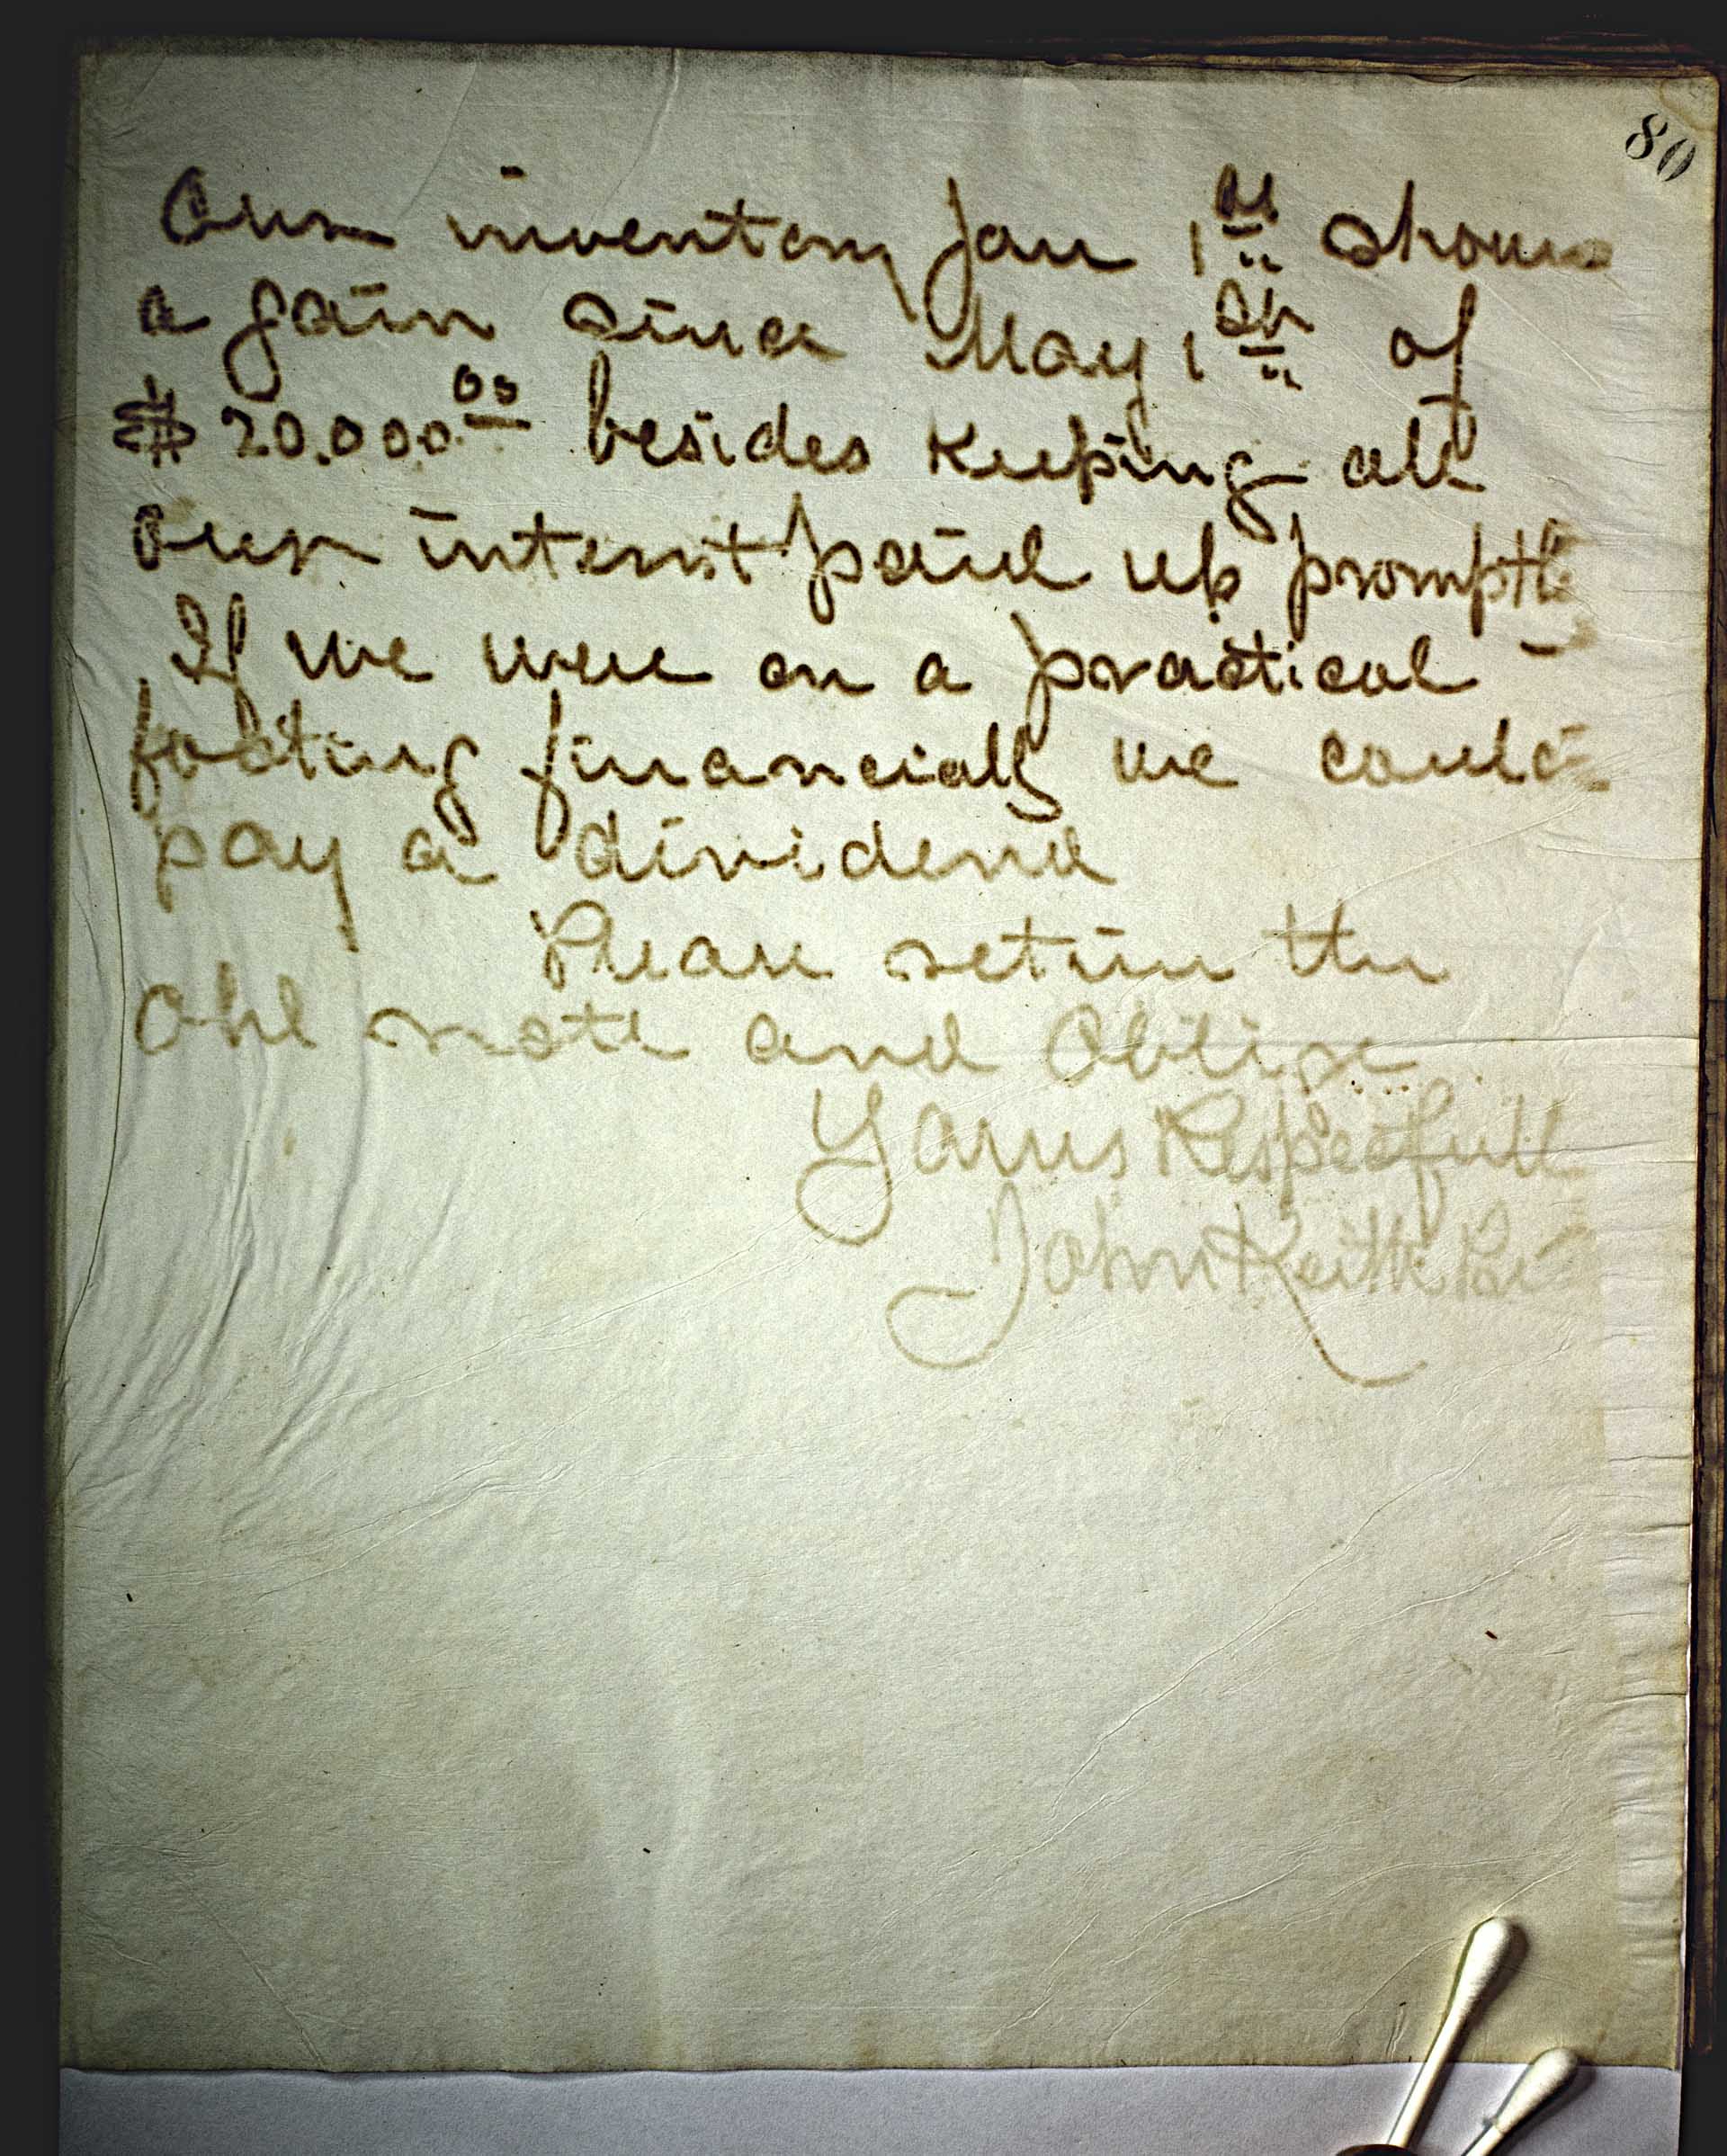 80
Our inventory Jan 1st shows
a gain since May 1st of
$20.000.00 besides keeping all
our interest paid up promptly
If we were on a practical
footing financially we could
pay a dividend
Please return the
old note and oblige
Yours Respectfull
John Keith